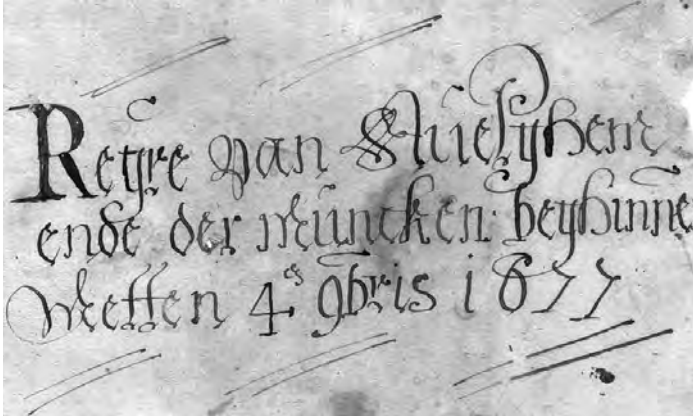 Regre van Auelghem
ende der Muncken beghinne
Metten 4 9bris 1677